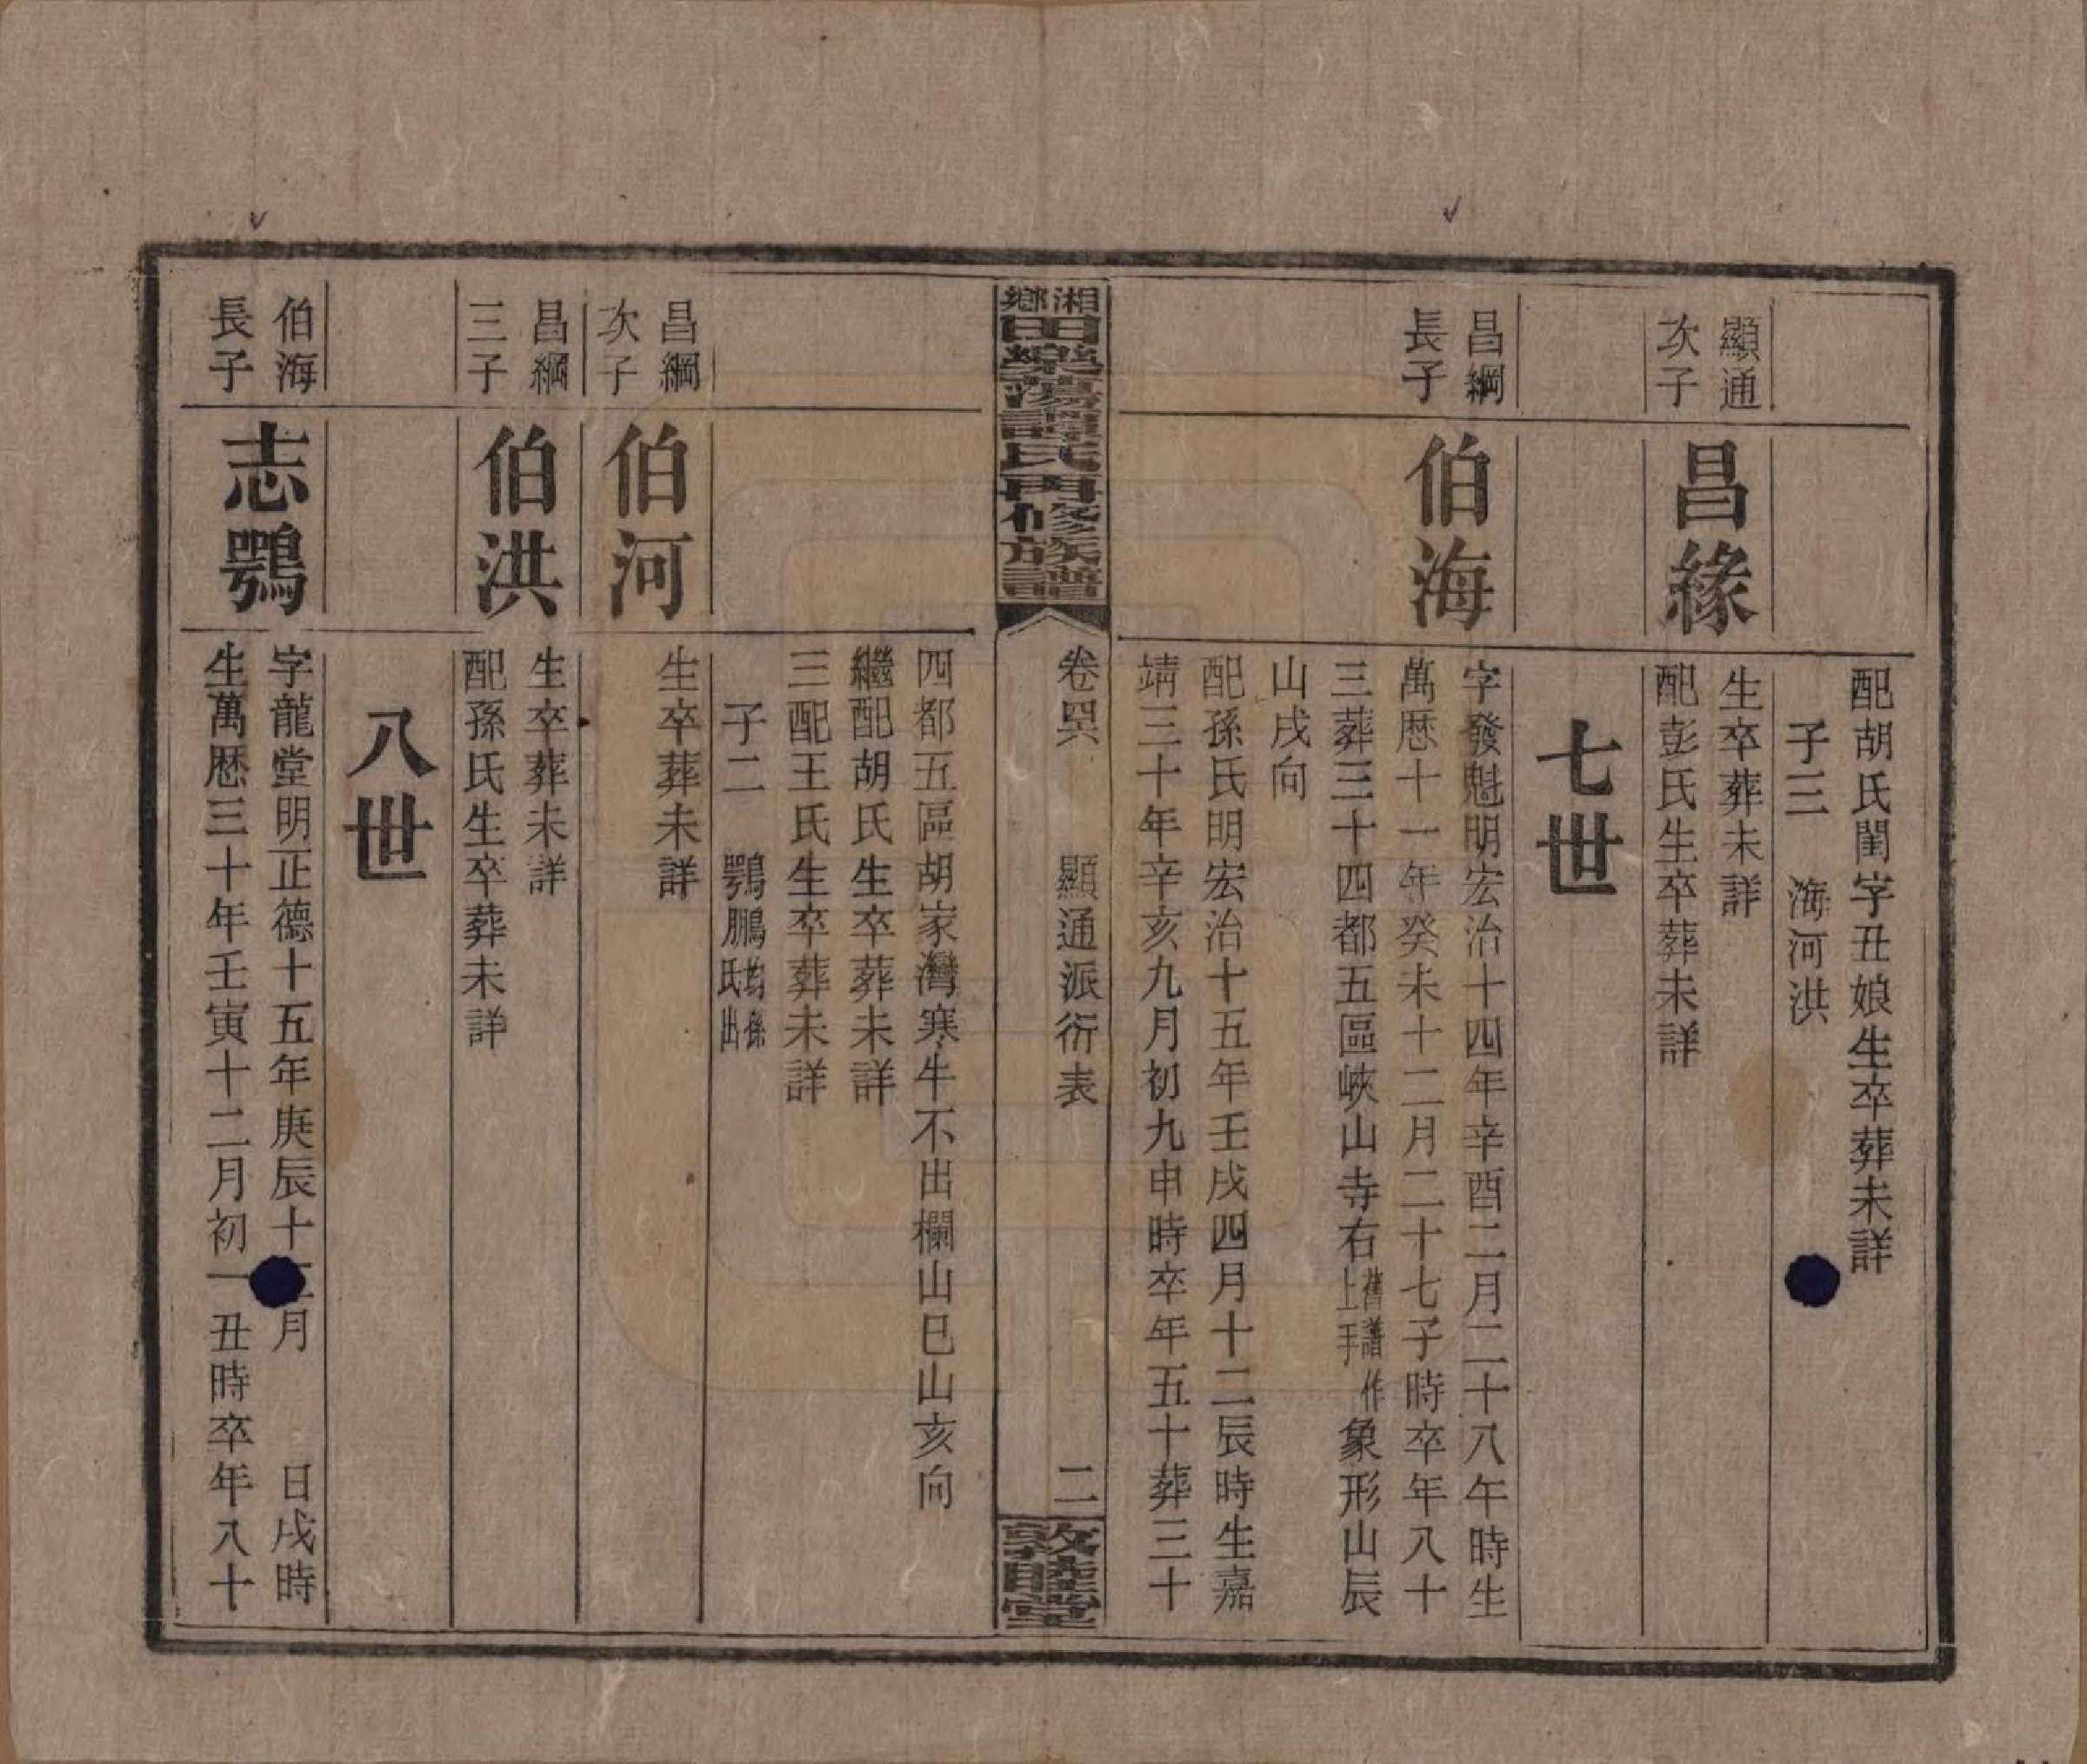 配胡氏閨字丑娘生卒葬未詳
子三 海河洪
顯通次子
昌緣
生卒葬未詳
配彭氏生卒葬未詳
七世
昌綱長子
伯海
字發魁明宏治十四年辛酉二月二十八午時生
萬歷十一年癸未十二月二十七子時卒年八十
三葬三十四都五區峽山寺右舊譜作上手象形山辰
山戌向
配孫氏明宏治十五年壬戌四月十二辰時生嘉
靖三十年辛亥九月初九申時卒年五十葬三十
湘鄉田樂蕩譚氏再修族譜
卷四
顯通派衍表
二
敦睦堂
四都五區胡家灣寒牛不出欄山巳山亥向
繼配胡氏生卒葬未詳
三配王氏生卒葬未詳
子二 鶚鵬均孫氏出
昌綱次子
伯河
生卒葬未詳
昌綱三子
伯洪
生卒葬未詳
配孫氏生卒葬未詳
八世
伯海長子
志鶚
字龍堂明正德十五年庚辰十二月 日戌時
生萬歷三十年壬寅十二月初一丑時卒年八十